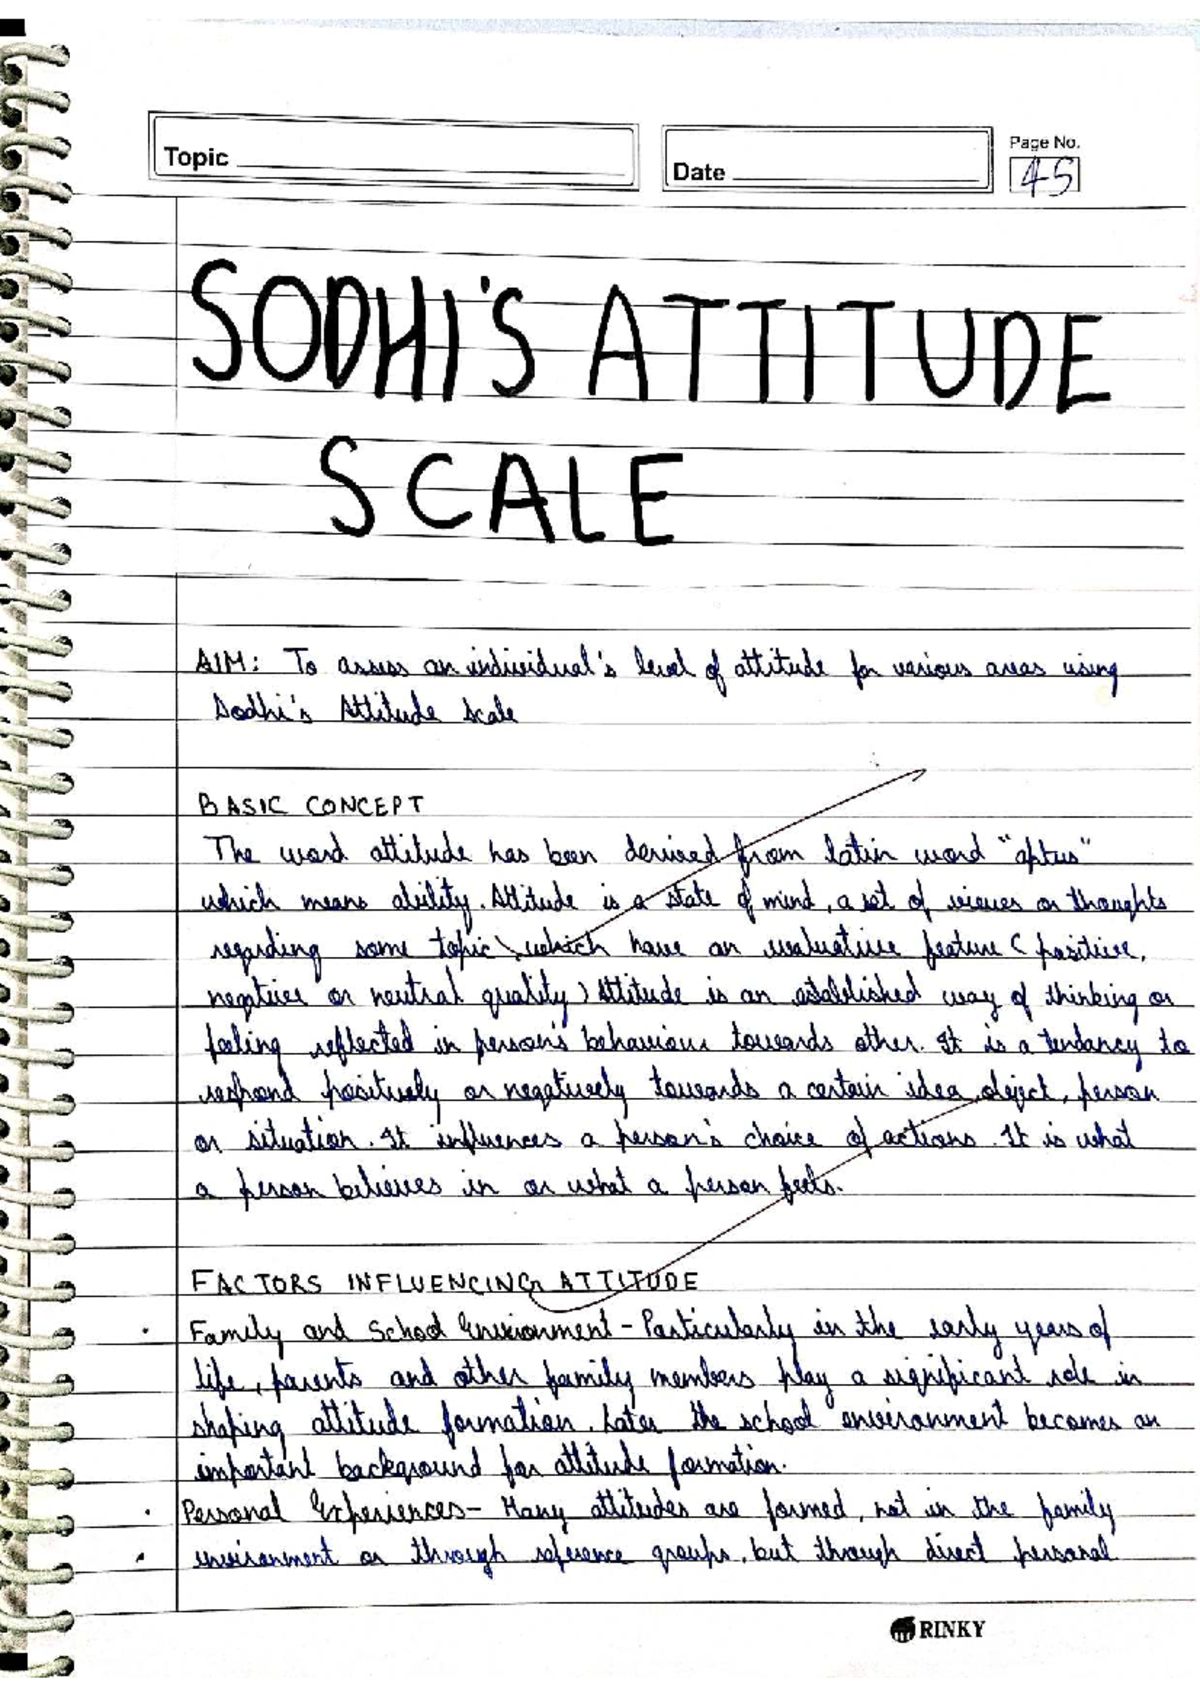 Topic
Date
Page No.
45
SODHI'S ATTITUDE
SCALE
AIM: To assess an individual's level of attitude for various areas using
Sodhi's Attitude Scale
BASIC CONCEPT
The word attitude has been derived from latin word "aptus"
which means ability. Attitude is a state of mind, a set of views or thoughts
regarding some topic, which have an evaluative feature (positive,
negative or neutral quality) Attitude is an established way of thinking or
feeling reflected in person's behaviour towards other. It is a tendancy to
respond positively or negatively towards a certain idea, object, person
or situation. It influences a person's choice of actions. It is what
a person believes in or what a person feels.
FACTORS INFLUENCING ATTITUDE
• Family and School Environment - Particularly in the early years of
life, parents and other family members play a significant role in
shaping attitude formation. Later the school environment becomes an
important background for attitude formation.
• Personal Experiences - Many attitudes are formed, not in the family
environment or through reference groups, but through direct personal
RINKY